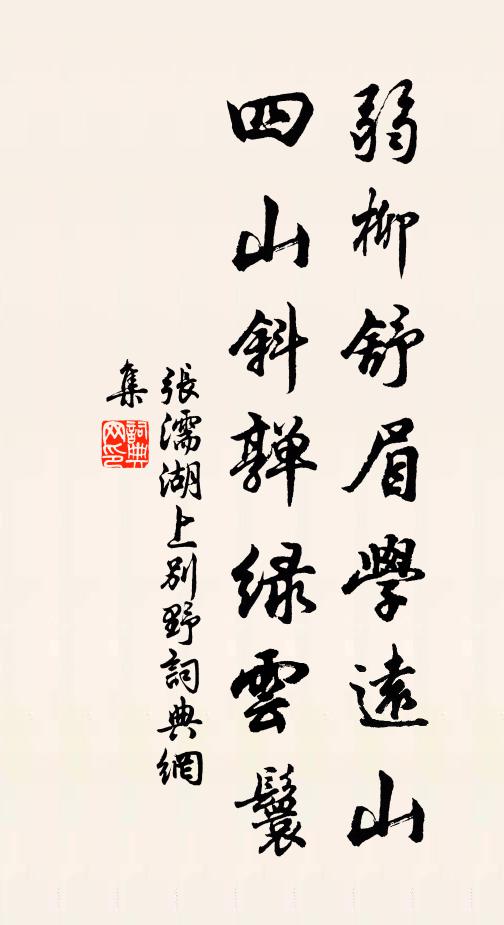 弱柳舒眉學遠山
四山斜嚲绿雲鬟
張濡湖上别野詞典網
集
詞典
网印